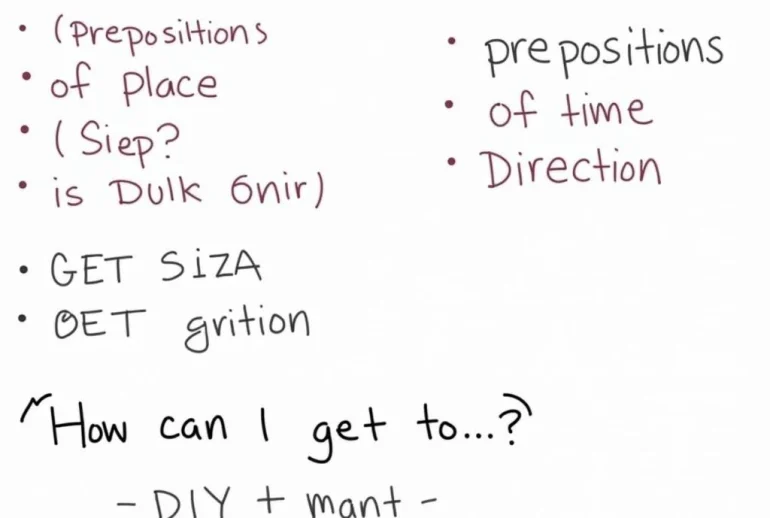 • (Preposiltions
• of place
• (Siep?
• is Dulk 6nir)
• prepositions
• of time
• Direction
• GET SiZA
• OET grition
"How can I get to...?"
- DIY + mant -